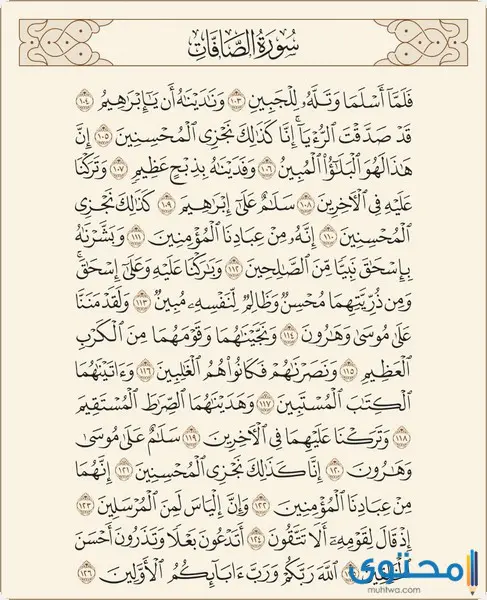 سُورَةُ الصَّافَّاتِ
فَلَمَّآ أَسْلَمَا وَتَلَّهُۥ لِلْجَبِينِ ١٠٣ وَنَٰدَيْنَٰهُ أَن يَٰٓإِبْرَٰهِيمُ ١٠٤
قَدْ صَدَّقْتَ ٱلرُّءْيَآۚ إِنَّا كَذَٰلِكَ نَجْزِى ٱلْمُحْسِنِينَ ١٠٥ إِنَّ
هَٰذَا لَهُوَ ٱلْبَلَٰٓؤُا۟ ٱلْمُبِينُ ١٠٦ وَفَدَيْنَٰهُ بِذِبْحٍ عَظِيمٍ ١٠٧ وَتَرَكْنَا
عَلَيْهِ فِى ٱلْءَاخِرِينَ ١٠٨ سَلَٰمٌ عَلَىٰٓ إِبْرَٰهِيمَ ١٠٩ كَذَٰلِكَ نَجْزِى
ٱلْمُحْسِنِينَ ١١٠ إِنَّهُۥ مِنْ عِبَادِنَا ٱلْمُؤْمِنِينَ ١١١ وَبَشَّرْنَٰهُ
بِإِسْحَٰقَ نَبِيًّا مِّنَ ٱلصَّٰلِحِينَ ١١٢ وَبَٰرَكْنَا عَلَيْهِ وَعَلَىٰٓ إِسْحَٰقَۚ
وَمِن ذُرِّيَّتِهِمَا مُحْسِنٌ وَظَالِمٌ لِّنَفْسِهِۦ مُبِينٌ ١١٣ وَلَقَدْ مَنَنَّا
عَلَىٰ مُوسَىٰ وَهَٰرُونَ ١١٤ وَنَجَّيْنَٰهُمَا وَقَوْمَهُمَا مِنَ ٱلْكَرْبِ
ٱلْعَظِيمِ ١١٥ وَنَصَرْنَٰهُمْ فَكَانُوا۟ هُمُ ٱلْغَٰلِبِينَ ١١٦ وَءَاتَيْنَٰهُمَا
ٱلْكِتَٰبَ ٱلْمُسْتَبِينَ ١١٧ وَهَدَيْنَٰهُمَا ٱلصِّرَٰطَ ٱلْمُسْتَقِيمَ
١١٨ وَتَرَكْنَا عَلَيْهِمَا فِى ٱلْءَاخِرِينَ ١١٩ سَلَٰمٌ عَلَىٰ مُوسَىٰ
وَهَٰرُونَ ١٢٠ إِنَّا كَذَٰلِكَ نَجْزِى ٱلْمُحْسِنِينَ ١٢١ إِنَّهُمَا
مِنْ عِبَادِنَا ٱلْمُؤْمِنِينَ ١٢٢ وَإِنَّ إِلْيَاسَ لَمِنَ ٱلْمُرْسَلِينَ ١٢٣
إِذْ قَالَ لِقَوْمِهِۦٓ أَلَا تَتَّقُونَ ١٢٤ أَتَدْعُونَ بَعْلًا وَتَذَرُونَ أَحْسَنَ
ٱللَّهَ رَبَّكُمْ وَرَبَّ ءَابَآئِكُمُ ٱلْأَوَّلِينَ ١٢٦
محتوى
muhtwa.com